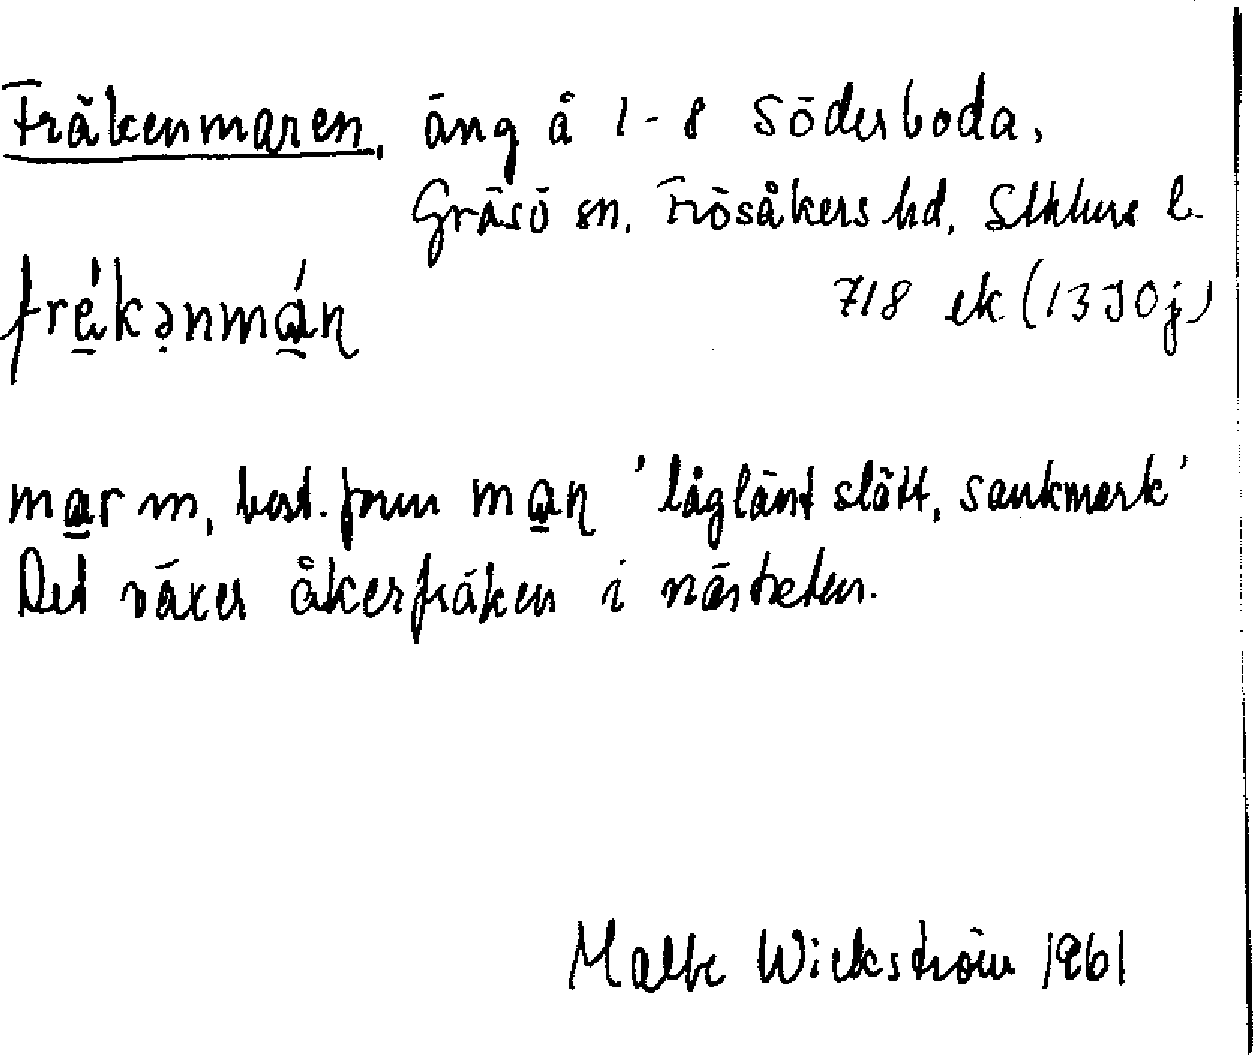 Fräkenmaren, äng å 1-8 Söderboda,
Gräsö sn, Frösåkers hd, Sthlms l.
718 ek (13J0j)
frǽkənmán
mar m, best. form man 'låglänt slätt, sankmark'
Det växer åkerfräken i närheten.
Malte Wickström 1961